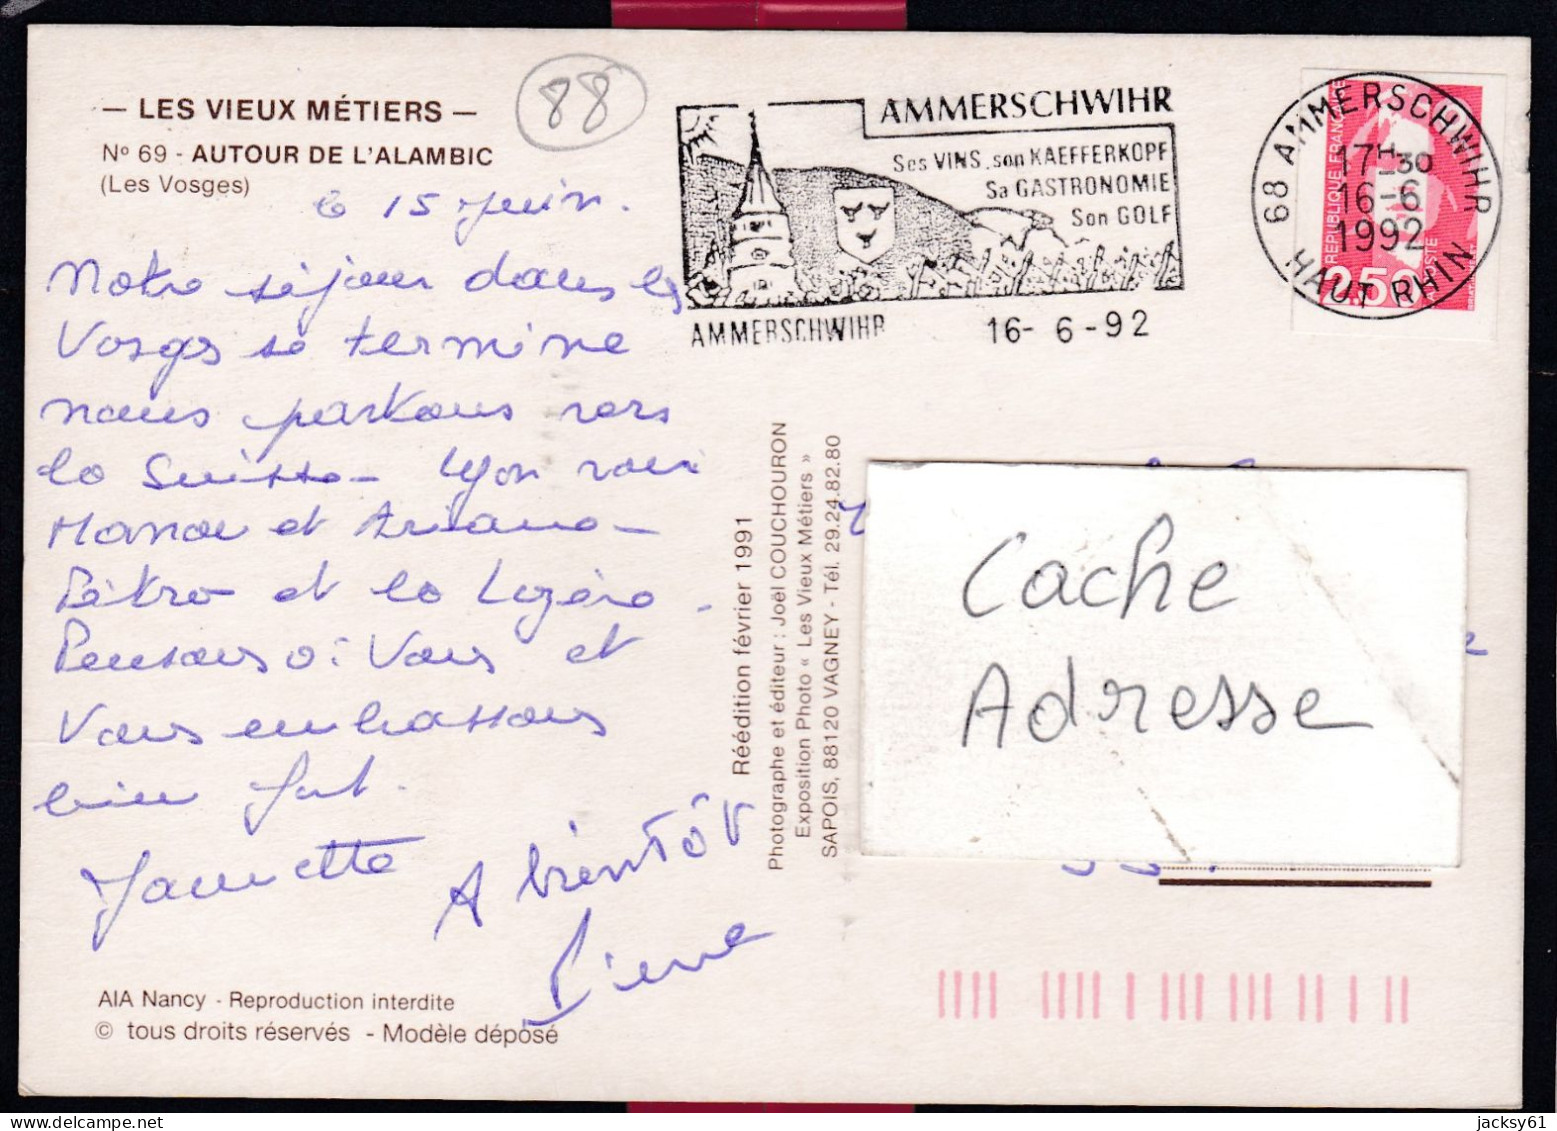 — LES VIEUX MÉTIERS —
Nº 69 - AUTOUR DE L'ALAMBIC
(Les Vosges)
88
le 15 Juin.
Notre séjour dans les
Vosges se termine
nous partons vers
la Suisse - Lyon voir
et
et la Lozère -
Pensons à Vous et
Vous embrassons
bien fort.
Jannette
A bientôt
Pierre
AIA Nancy - Reproduction interdite
© tous droits réservés - Modèle déposé
Réédition février 1991
Photographe et éditeur : Joël COUCHOURON
Exposition Photo « Les Vieux Métiers »
SAPOIS, 88120 VAGNEY - Tél. 29.24.82.80
AMMERSCHWIHR
Ses VINS, son KAEFFERKOPF
Sa GASTRONOMIE
Son GOLF
AMMERSCHWIHR 16- 6 -92
68 AMMERSCHWIHR
17H30
16-6
1992
HAUT RHIN
REPUBLIQUE FRANÇAISE
2.50
Cache
Adresse
jacksy61